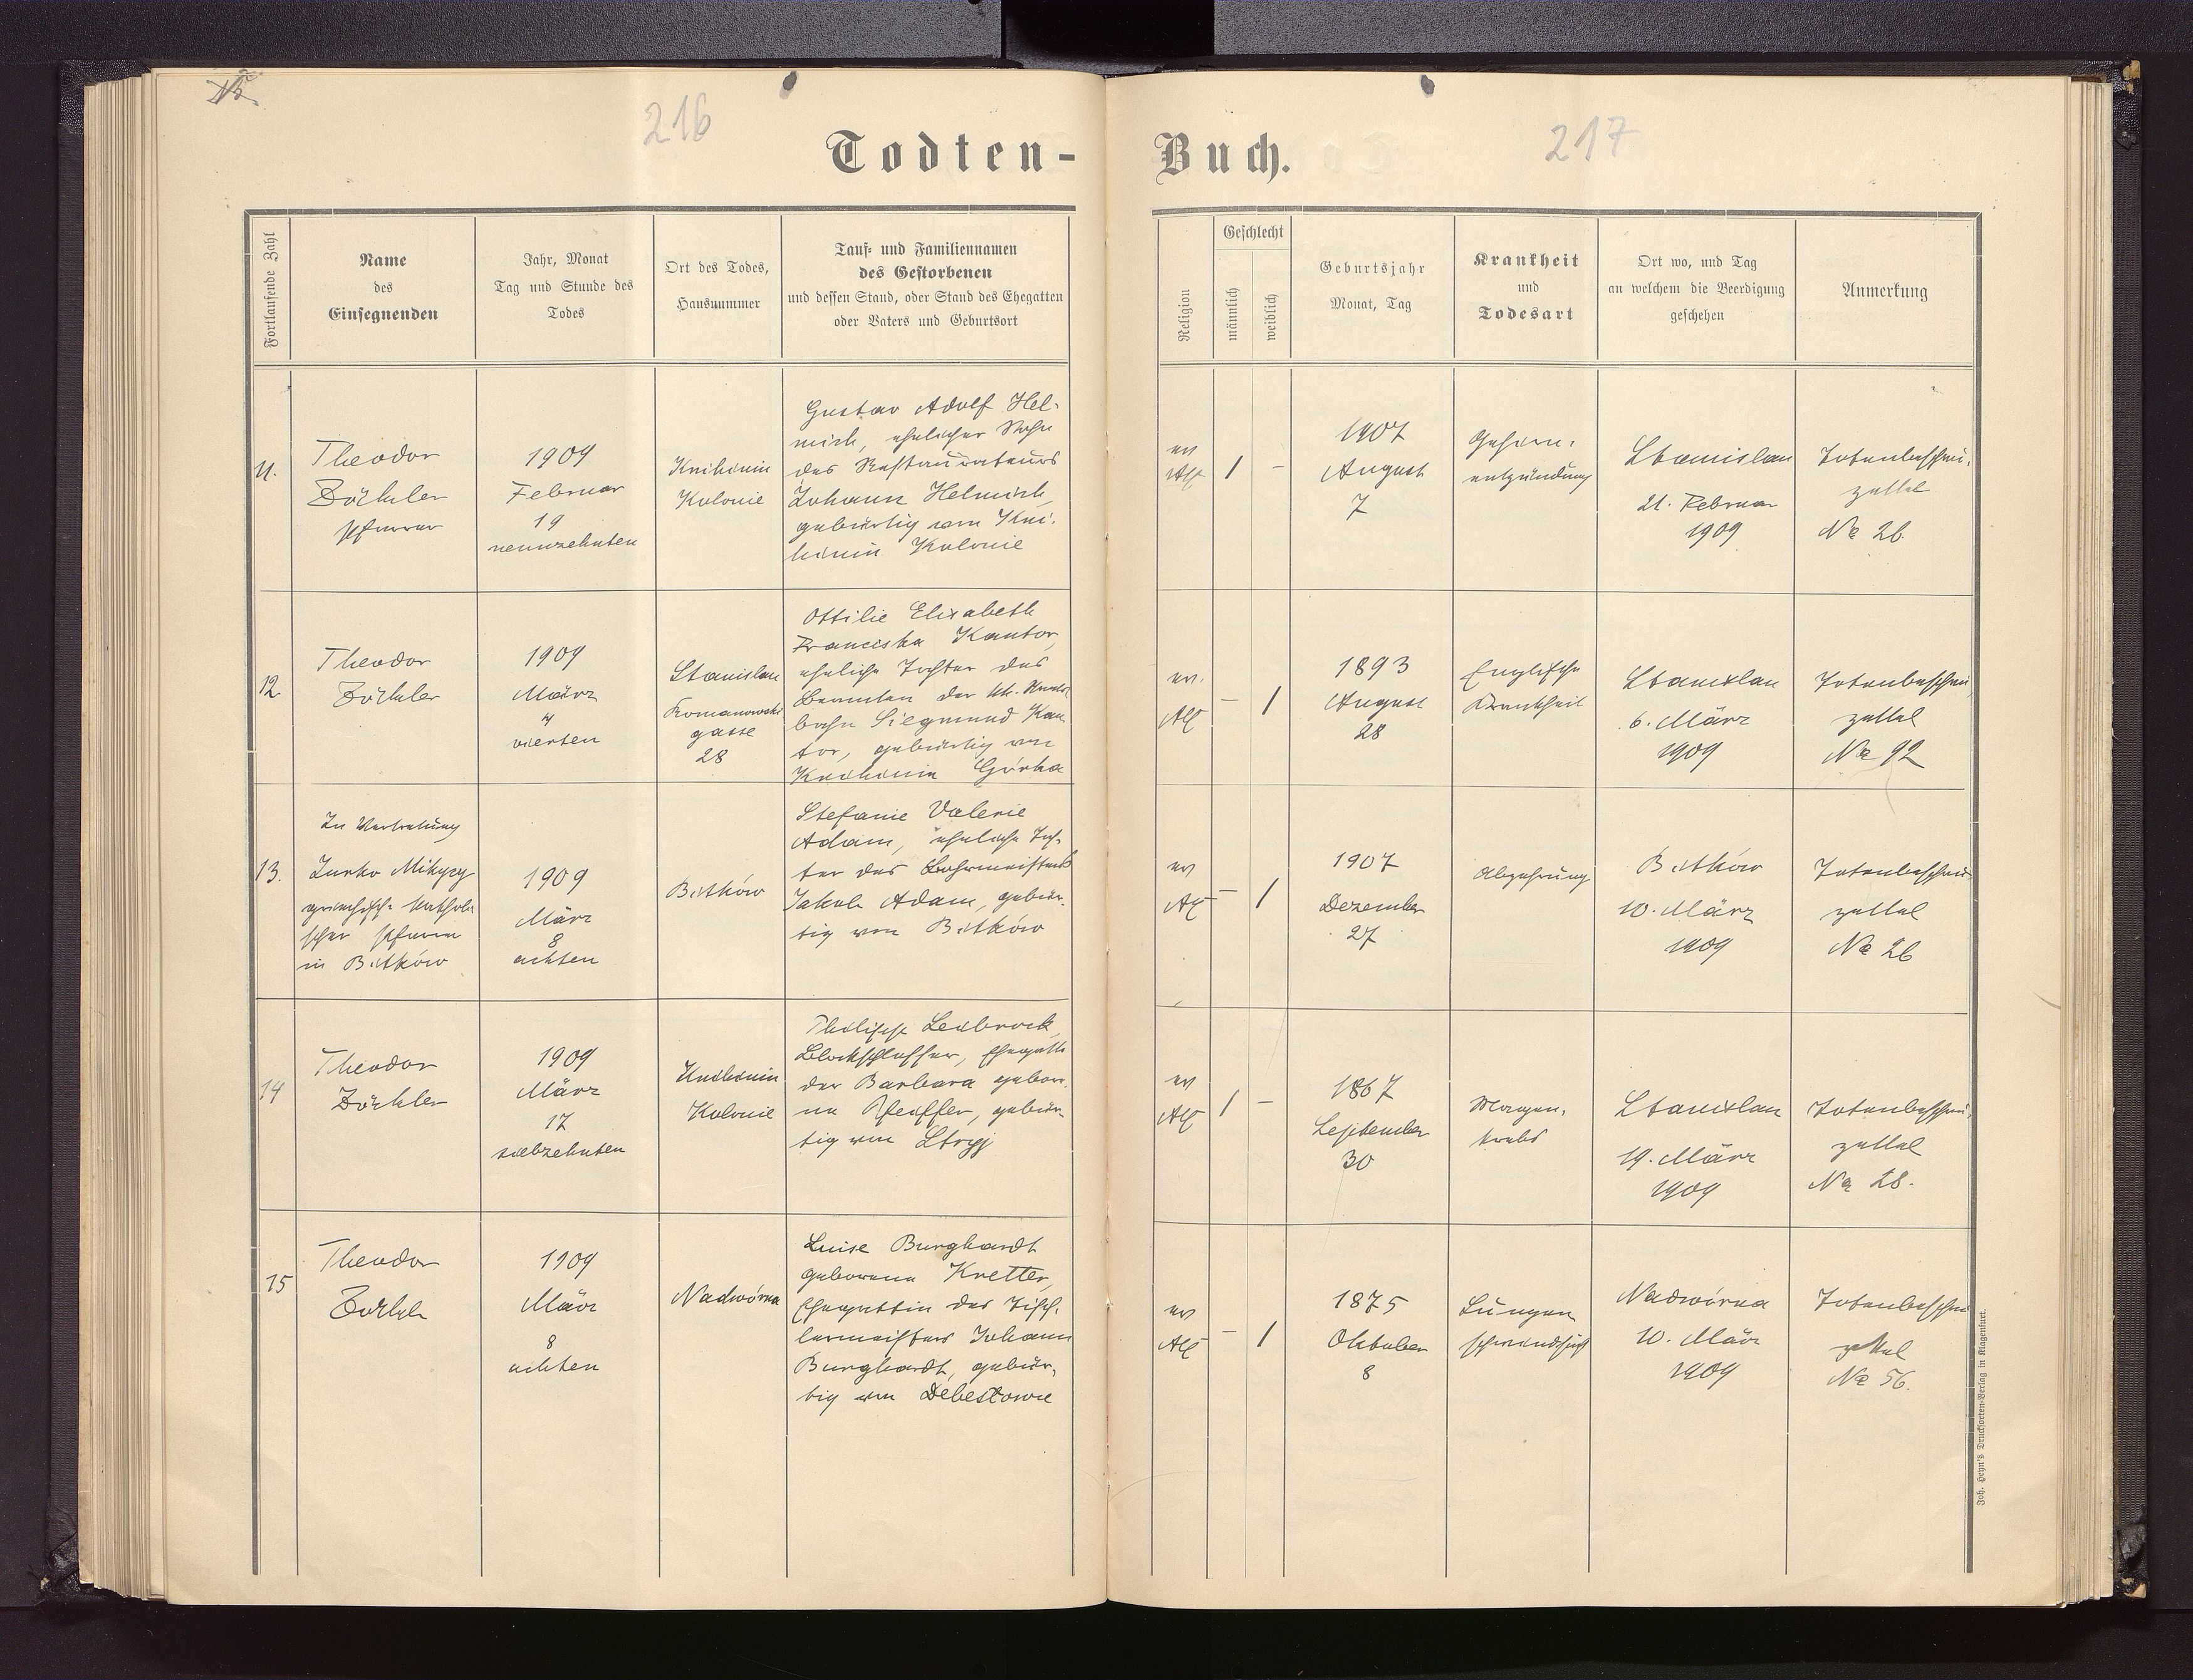 216
217
Todten-
Buch.
Fortlaufende Zahl
Name
des
Einsegnenden
Jahr, Monat
Tag und Stunde des
Todes
Ort des Todes,
Hausnummer
Tauf- und Familiennamen
des Gestorbenen
und dessen Stand, oder Stand des Ehegatten
oder Vaters und Geburtsort
Religion
Geschlecht
männlich
weiblich
Geburtsjahr
Monat, Tag
Krankheit
und
Todesart
Ort wo, und Tag
an welchem die Beerdigung
geschehen
Anmerkung
11.
Theodor
Zöckler
Pfarrer
1909
Februar
19
neunzehnten
Knihinin
Kolonie
Gustav Adolf Hel-
mich, ehelicher Sohn
des Restaurateurs
Johann Helmich,
gebürtig von Kni-
hinin Kolonie
ev
AC
1
-
1907
August
7
Gehirn-
entzündung
Stanislau
21. Februar
1909
Totenbeschau-
zettel
No 26.
12
Theodor
Zöckler
1909
März
4
vierten
Stanislau
Romanowski
gasse
28
Ottilie Elisabeth
Franciska Kantor,
eheliche Tochter des
Beamten der kk. Staats
bahn Siegmund Kan
tor, gebürtig von
Knihinin Górka
ev.
AC
-
1
1893
August
28
Englische
Krankheit
Stanislau
6. März
1909
Totenbeschau
zettel
No 92
13.
In Vertretung
Jurko Mikycy
griechisch-katholi
scher Pfarrer
in Bitków
1909
März
8
achten
Bitków
Stefanie Valerie
Adam, eheliche Toch-
ter des Bohrmeisters
Jakob Adam, gebür-
tig von Bitków
ev
AC
-
1
1907
Dezember
27
Abzehrung
Bitków
10. März
1909
Totenbeschau
zettel
No 26
14
Theodor
Zöckler
1909
März
17
siebzehnten
Knihinin
Kolonie
Philipp Leibrock,
Blockschlosser, Ehegatte
der Barbara gebore-
ne Pfeiffer, gebür-
tig von Stryj
ev
AC
1
-
1867
September
30
Magen-
krebs
Stanislau
19. März
1909
Totenbeschau-
zettel
No 28.
15
Theodor
Zöckler
1909
März
8
achten
Nadwórna
Luise Burghardt
geborene Kretter,
Ehegattin des Tisch-
lermeisters Johann
Burghardt, gebür-
tig von Debeslawce
ev
AC
-
1
1875
Oktober
8
Lungen
schwindsucht
Nadwórna
10. März
1909
Totenbeschau
zettel
No 56.
Joh. Heyn's Drucksorten-Verlag in Klagenfurt.